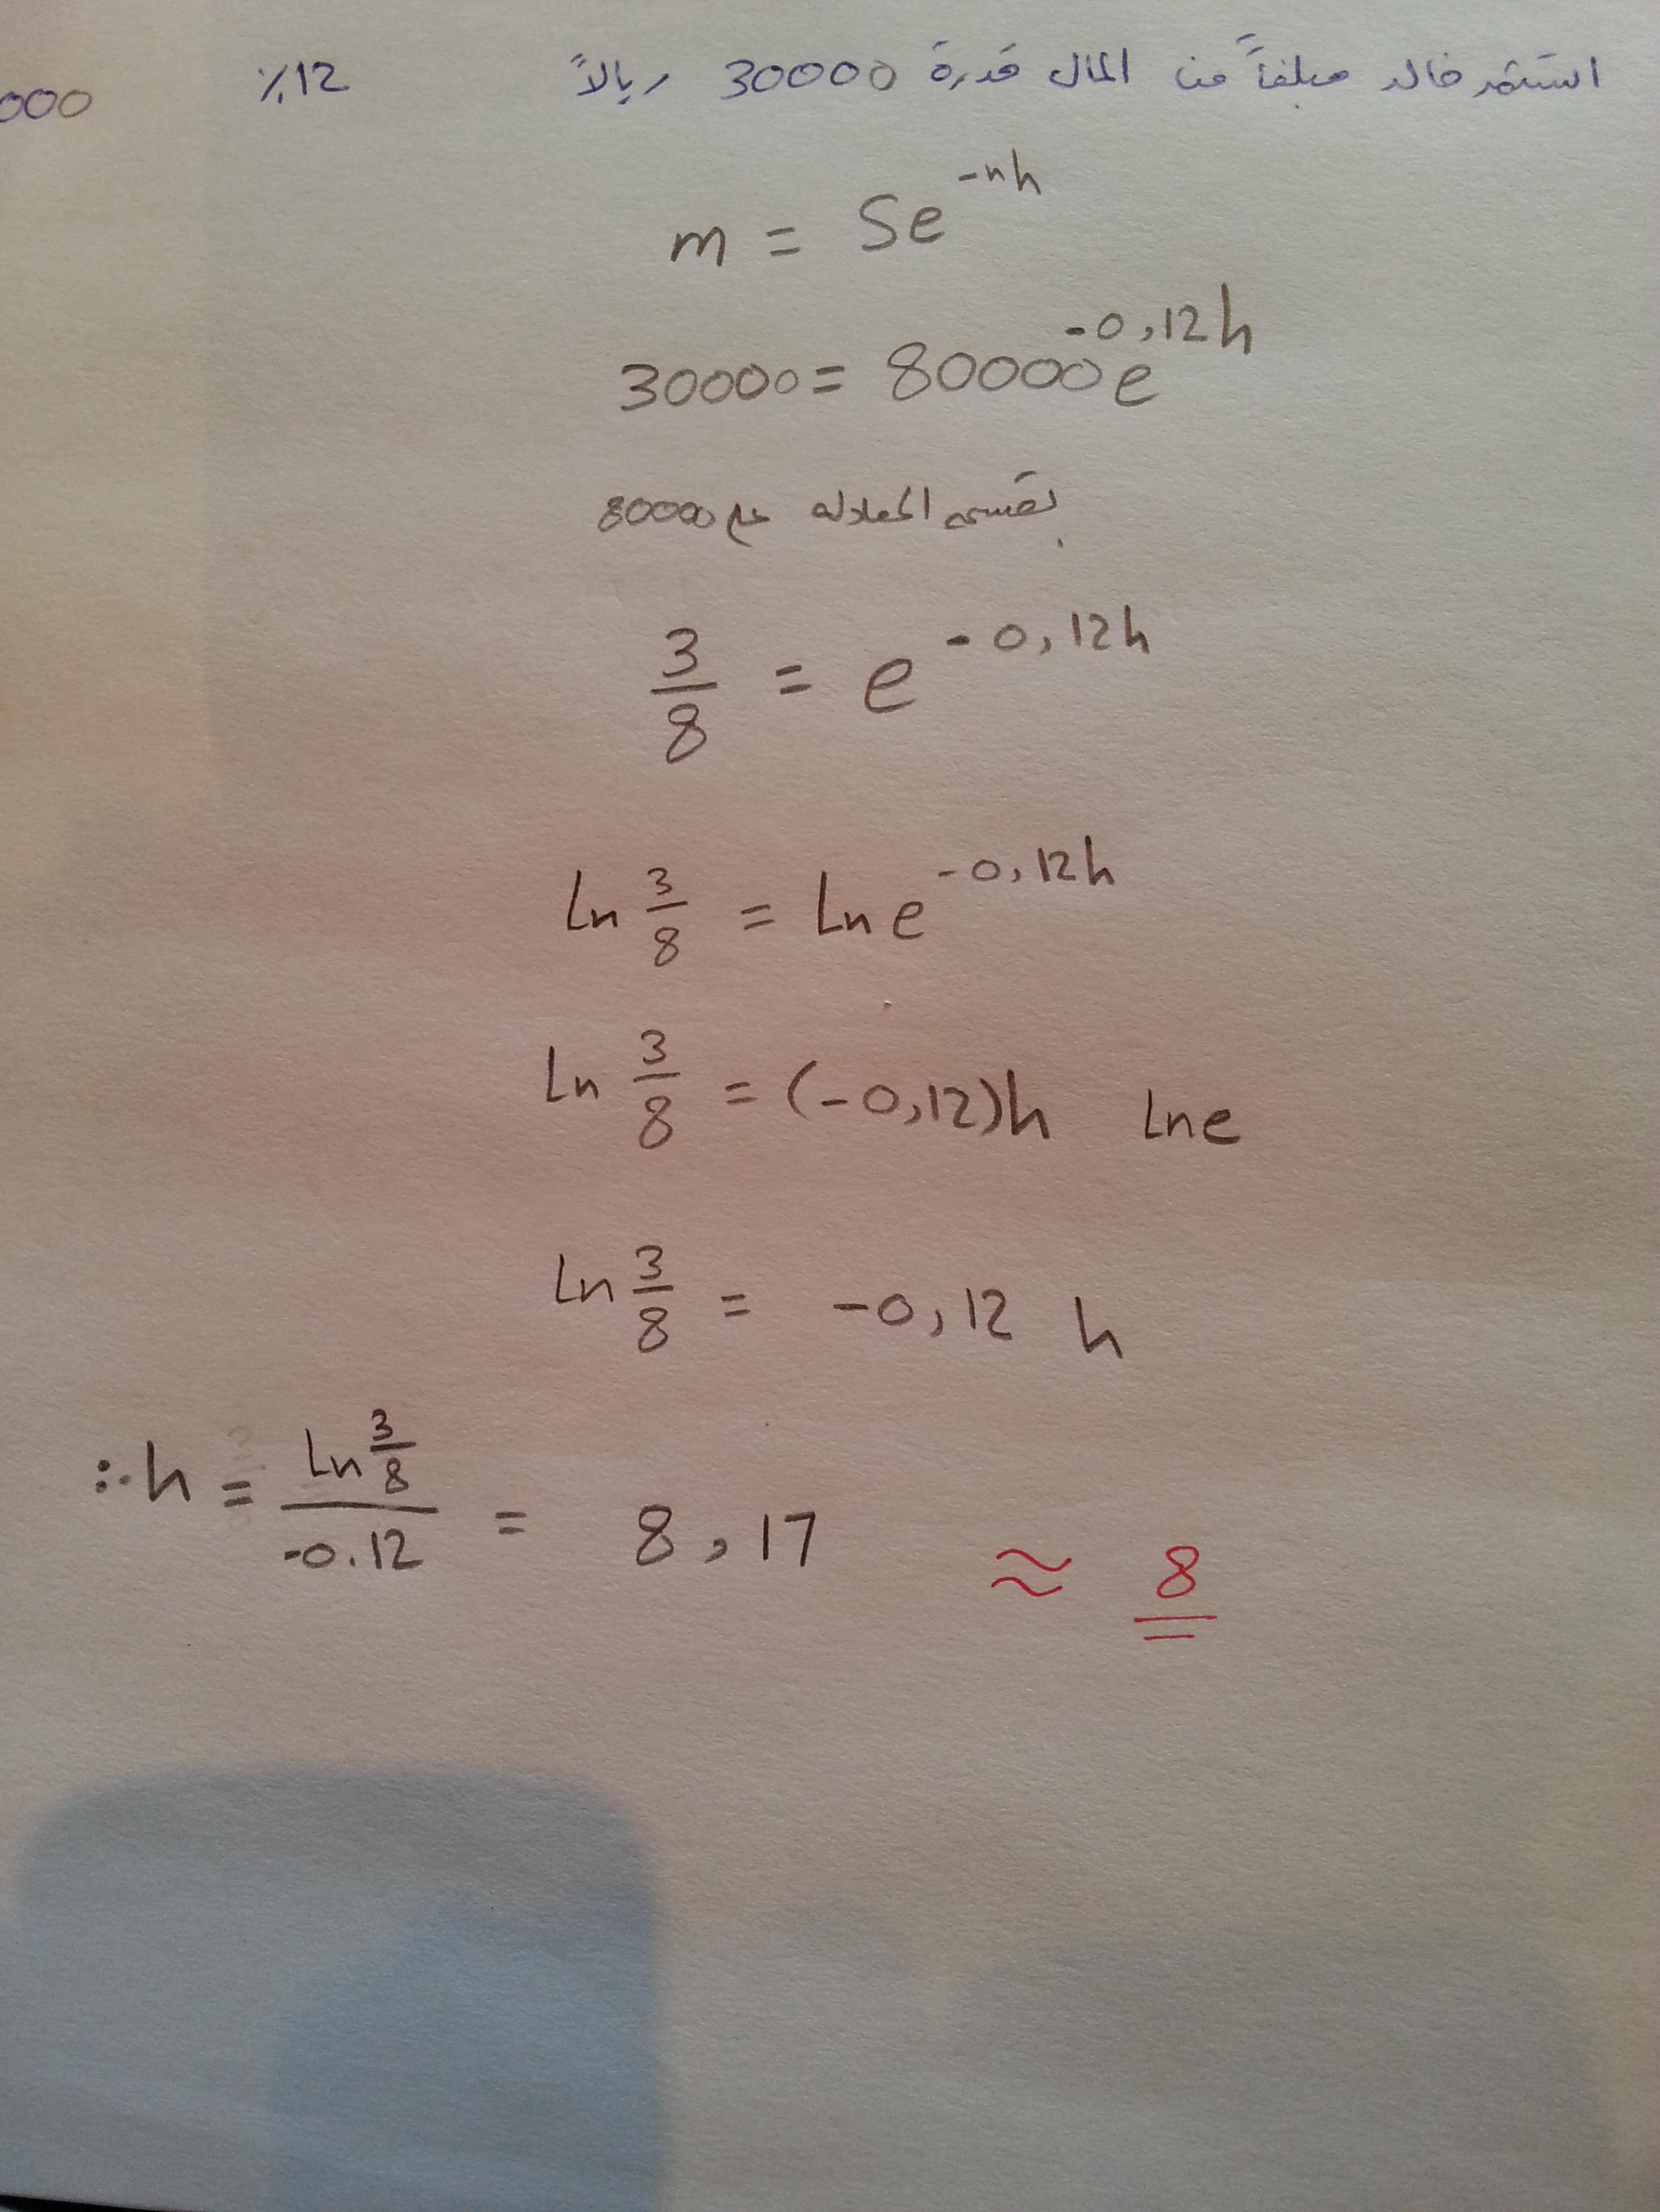 استثمر خالد مبلغاً من المال قدرة 30000 ريالاً 12٪ 000
m = Se^-nh
30000 = 80000e^-0,12h
بقسمى المعادله على 80000
3/8 = e^-0,12h
Ln 3/8 = Ln e^-0,12h
Ln 3/8 = (-0,12)h Lne
Ln 3/8 = -0,12 h
∴ h = Ln 3/8 / -0.12 = 8,17 ≈ 8